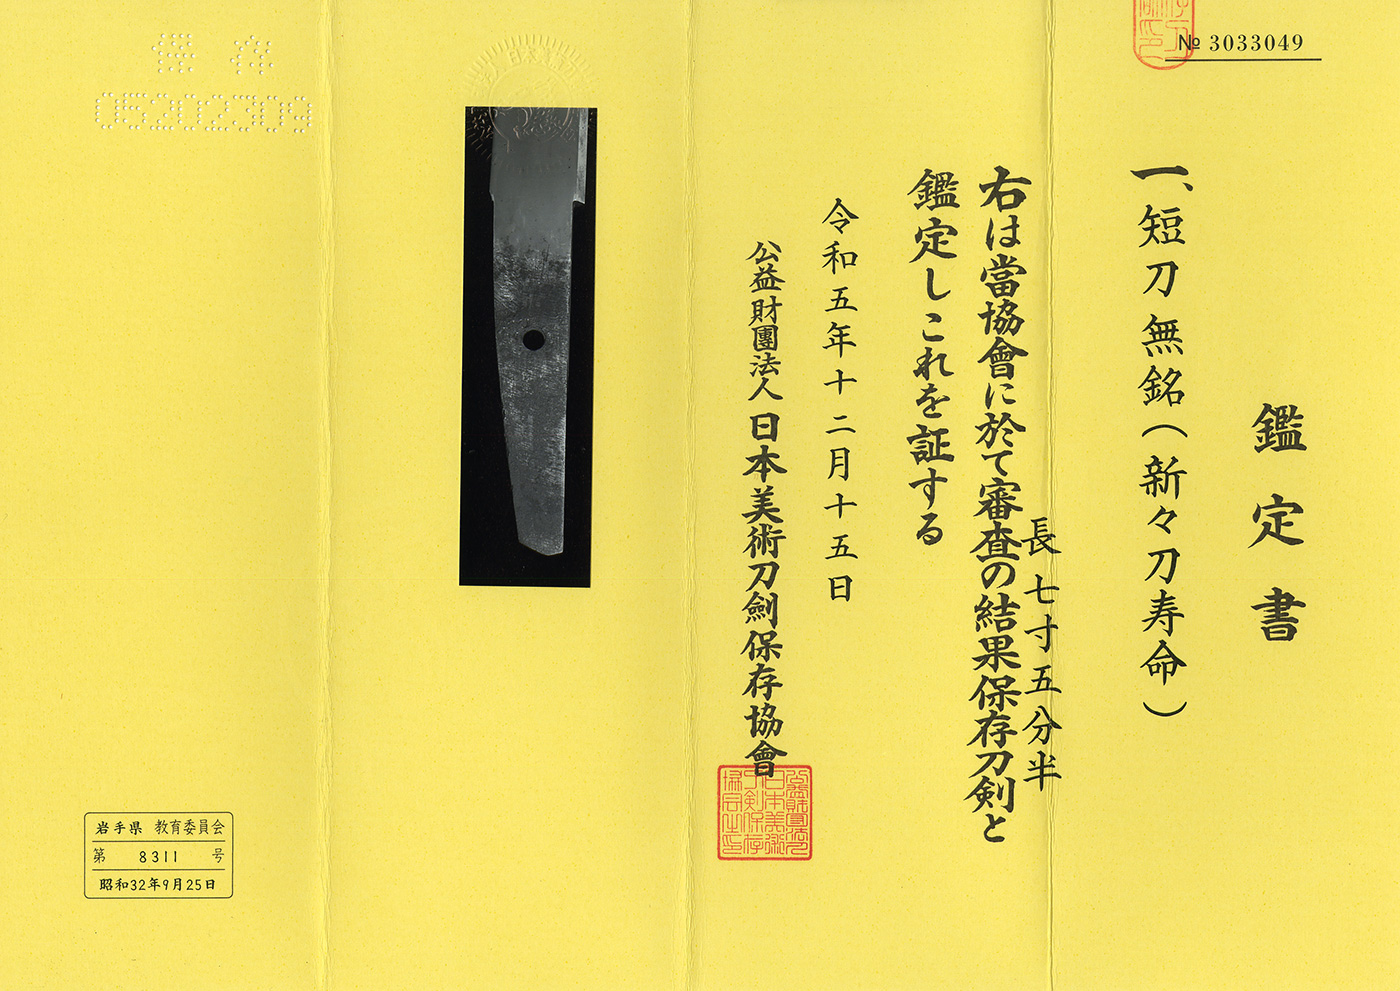 № 3033049
鑑定書
一、短刀無銘(新々刀寿命)
長七寸五分半
右は當協會に於て審査の結果保存刀剣と
鑑定しこれを証する
令和五年十二月十五日
公益財團法人日本美術刀劍保存協會
保存
05202309
岩手県 教育委員会
第 8311 号
昭和32年9月25日